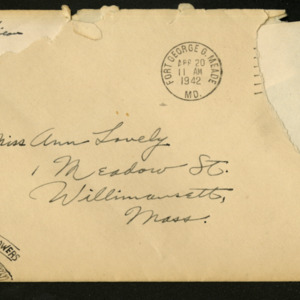 FORT GEORGE G. MEADE
APR 20
11 AM
1942
MD.
Miss Ann Lovely
1 Meadow St.
Willimansett,
Mass.